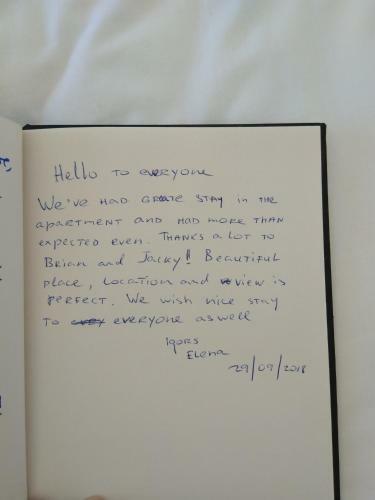 Hello to everyone
We've had grate stay in the
apartment and had more than
expected even. Thanks a lot to
Brian and Jacky!! Beautiful
place, location and view is
perfect. We wish nice stay
to everyone aswell
Igors
Elena
29/09/2018